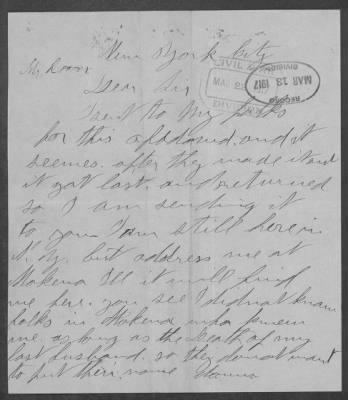 New York City
My Dear
Dear Sir
CIVIL
DIVISION
RECORD
MAR 13 1917
DIVISION
I sent to My folks
for this and it
seemes. after they made it out
it got lost. and returned
so I am sending it
to you I am still here in
N. Y. but address me at
Makena Ill it will find
me here. you see I did not know
folks in Makena who knew
me as long as the death of my
last husband. so they do not want
to put their name